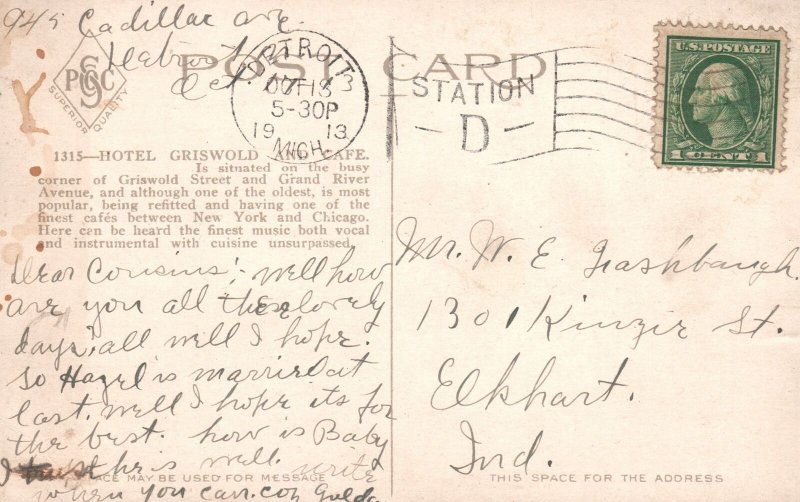 945 Cadillac ave.
Detroit
Oct.
POST CARD
PCSC
SUPERIOR QUALITY
DETROIT
OCT 13
5-30P
1913
MICH.
STATION
- D -
U.S. POSTAGE
1 CENT 1
1315—HOTEL GRISWOLD AND CAFE.
Is situated on the busy
corner of Griswold Street and Grand River
Avenue, and although one of the oldest, is most
popular, being refitted and having one of the
finest cafés between New York and Chicago.
Here can be heard the finest music both vocal
and instrumental with cuisine unsurpassed.
Dear Cousins:- well how
are you all these lovely
days, all well I hope.
So Hazel is married at
last. Well I hope its for
the best. how is Baby
I trust he is well. write
when you can. coz
SPACE MAY BE USED FOR MESSAGE
Mr. W. E.
1301 Kinzie St.
Elkhart.
Ind.
THIS SPACE FOR THE ADDRESS